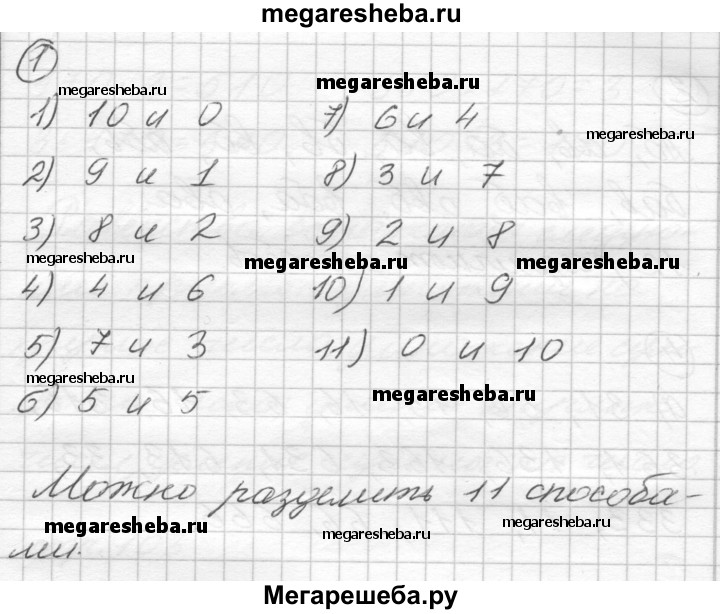 megaresheba.ru
1
megaresheba.ru
megaresheba.ru
1) 10 и 0
7) 6 и 4
megaresheba.ru
2) 9 и 1
8) 3 и 7
3) 8 и 2
9) 2 и 8
megaresheba.ru
megaresheba.ru
megaresheba.ru
4) 4 и 6
10) 1 и 9
5) 7 и 3
11) 0 и 10
megaresheba.ru
megaresheba.ru
6) 5 и 5
Можно разделить 11 способа-
megaresheba.ru
megaresheba.ru
megaresheba.ru
ми.
Мегарешеба.ру